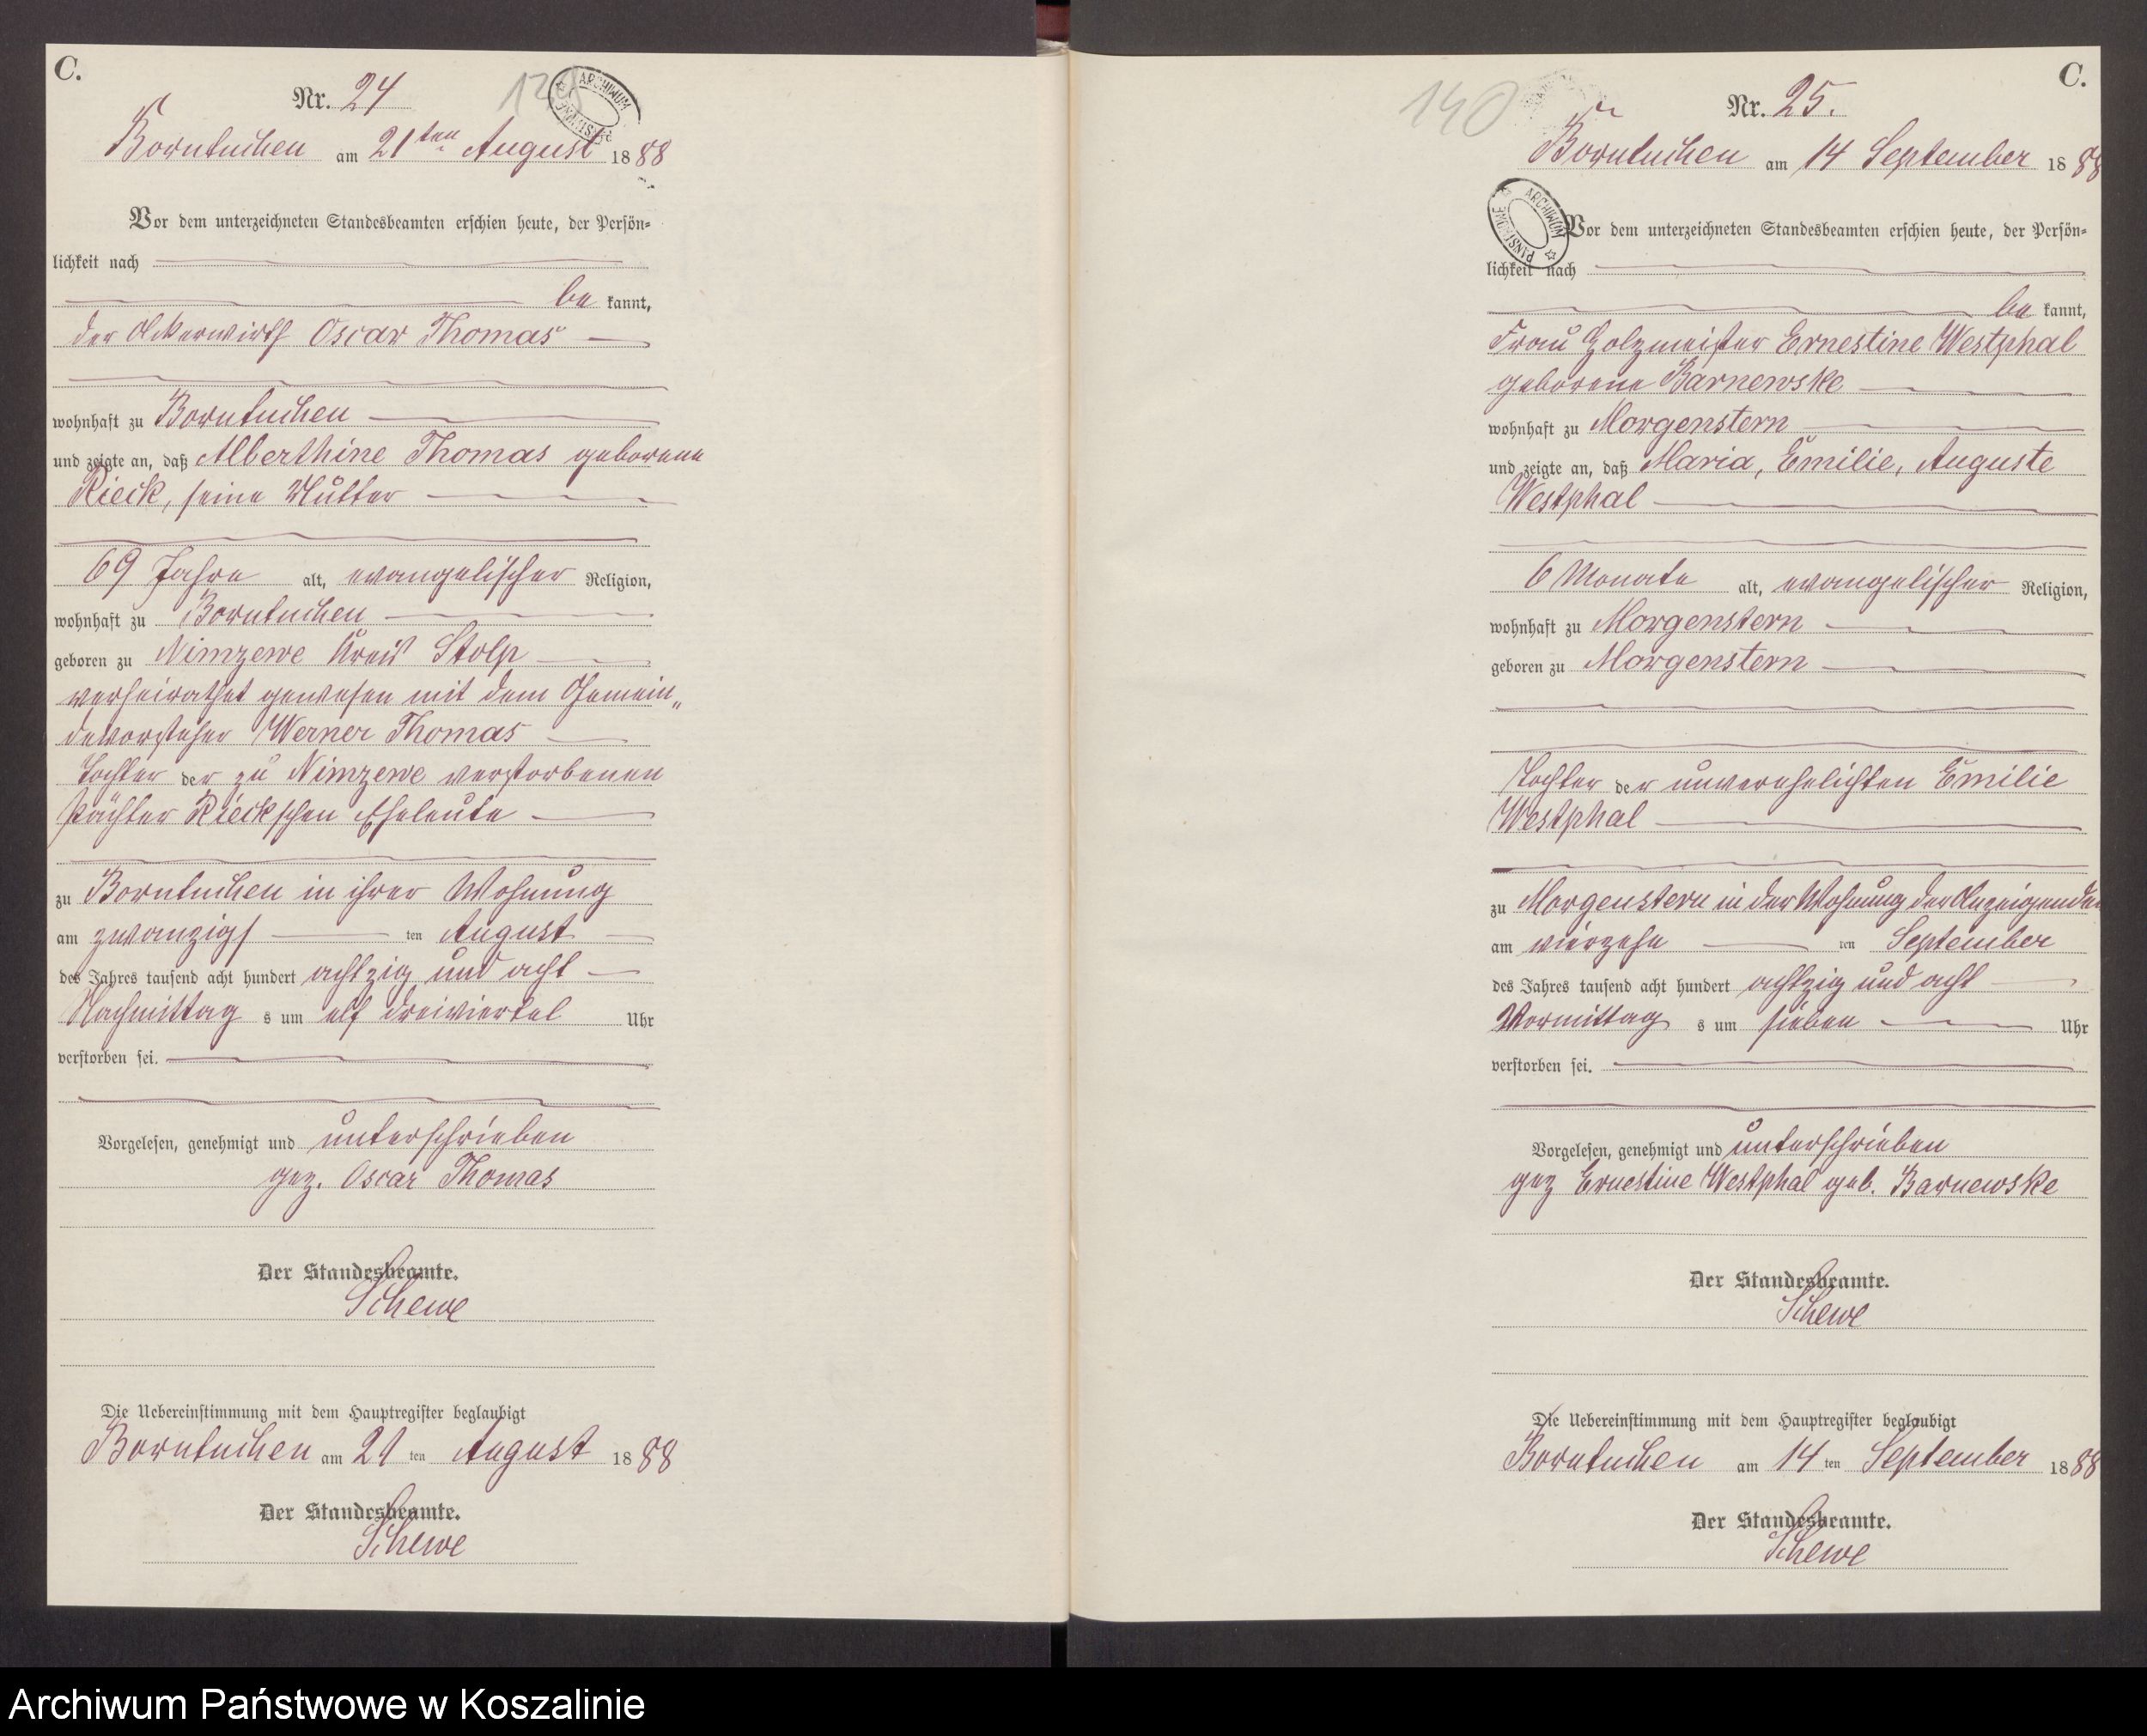 C.
Nr. 24
139
ARCHIWUM PAŃSTWOWE
Borntuchen am 21ten August 1888
Vor dem unterzeichneten Standesbeamten erschien heute, der Persön-
lichkeit nach
be kannt,
der Ackerwirth Oscar Thomas
wohnhaft zu Borntuchen
und zeigte an, daß Alberthine Thomas geborene
Rieck, seine Mutter
69 Jahre alt, evangelischer Religion,
wohnhaft zu Borntuchen
geboren zu Nimzewe Kreis Stolp
verheirathet gewesen mit dem Gemein„
devorsteher Werner Thomas
Tochter der zu Nimzewe verstorbenen
Pächter Rieckschen Eheleute
zu Borntuchen in ihrer Wohnung
am zwanzigs ten August
des Jahres tausend acht hundert achtzig und acht
Nachmittag s um elf dreiviertel Uhr
verstorben sei.
Vorgelesen, genehmigt und unterschrieben
gez. Oscar Thomas
Der Standesbeamte.
Schewe
Die Uebereinstimmung mit dem Hauptregister beglaubigt
Borntuchen am 21 ten August 1888
Der Standesbeamte.
Schewe
C.
140
Nr. 25.
Borntuchen am 14 September 1888
ARCHIWUM PAŃSTWOWE
Vor dem unterzeichneten Standesbeamten erschien heute, der Persön-
lichkeit nach
be kannt,
Frau Holzmeister Ernestine Westphal
geborene Barnewske
wohnhaft zu Morgenstern
und zeigte an, daß Maria, Emilie, Auguste
Westphal
6 Monate alt, evangelischer Religion,
wohnhaft zu Morgenstern
geboren zu Morgenstern
Tochter der unverehelichten Emilie
Westphal
zu Morgenstern in der Wohnung der Anzeigenden
am vierzehn ten September
des Jahres tausend acht hundert achtzig und acht
Vormittag s um sieben Uhr
verstorben sei.
Vorgelesen, genehmigt und unterschrieben
gez Ernestine Westphal geb. Barnewske
Der Standesbeamte.
Schewe
Die Uebereinstimmung mit dem Hauptregister beglaubigt
Borntuchen am 14 ten September 1888
Der Standesbeamte.
Schewe
Archiwum Państwowe w Koszalinie